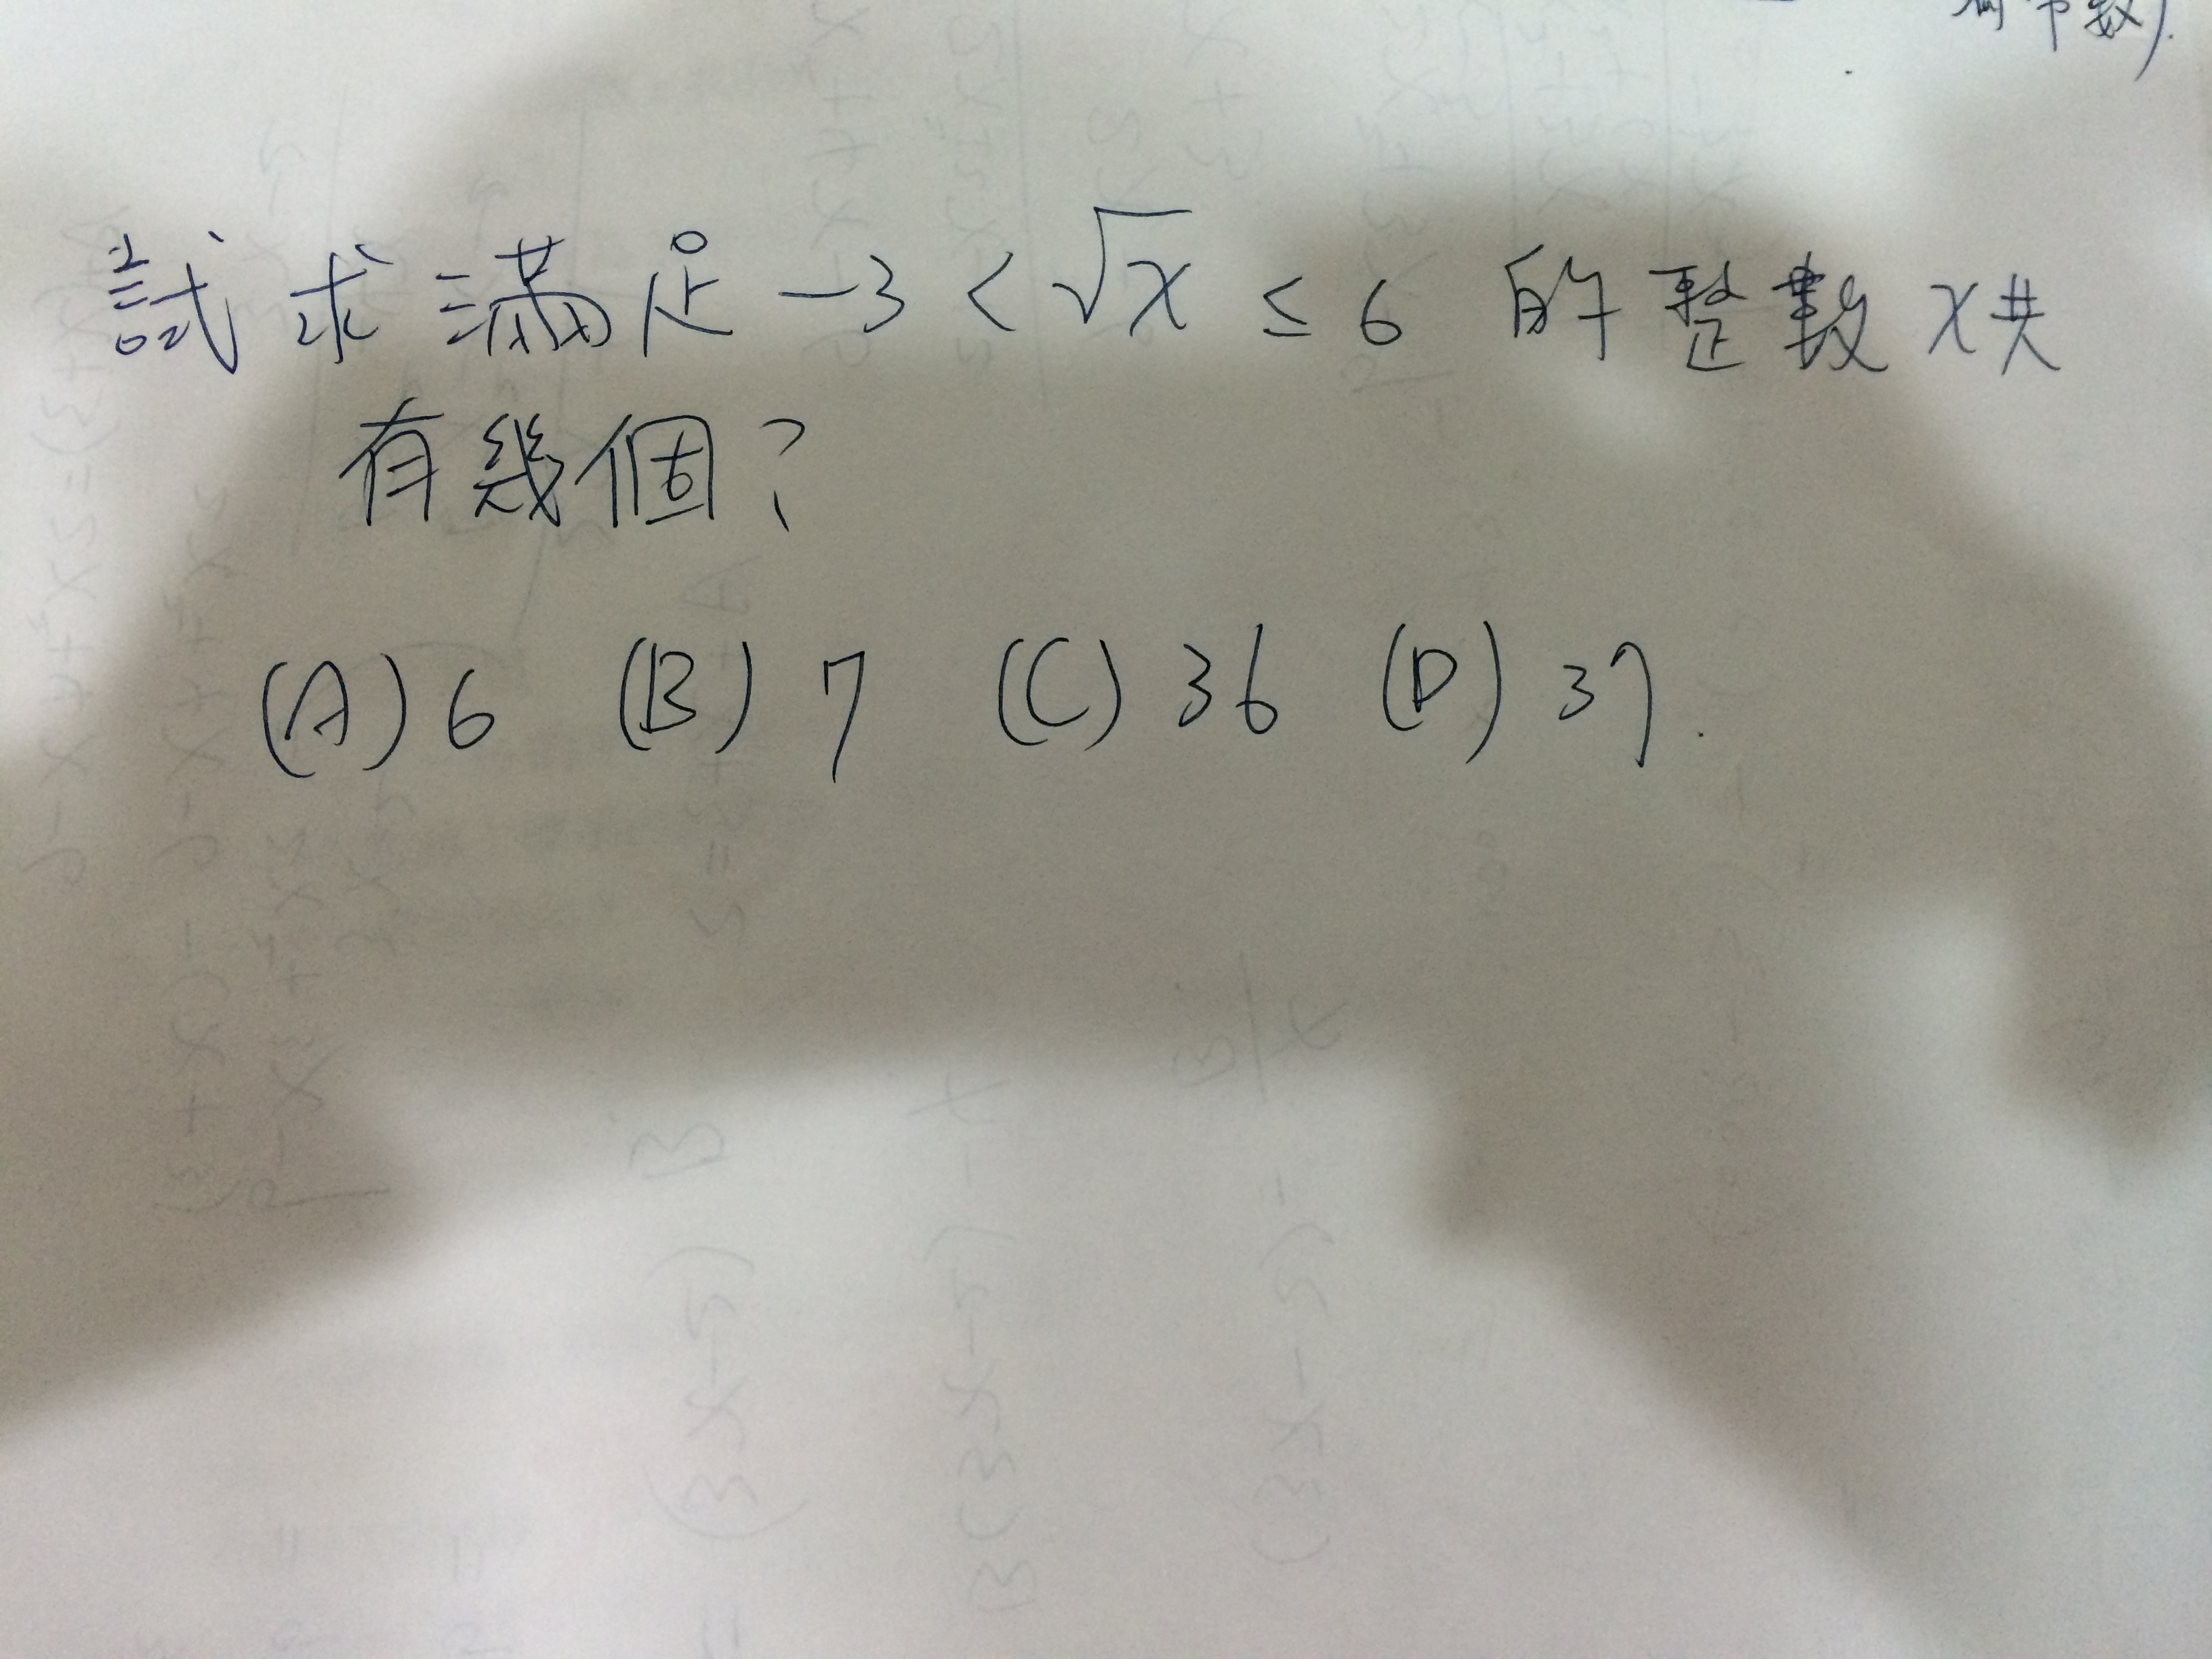 有常數).
試求滿足 -3 < √x ≤ 6 的整數 x共
有幾個?
(A) 6 (B) 7 (C) 36 (D) 37.